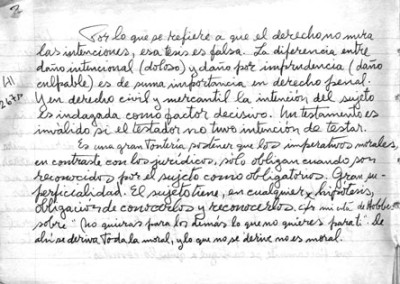 Por lo que se refiere a que el derecho no mira
las intenciones, esa tesis es falsa. La diferencia entre
daño intencional (doloso) y daño por imprudencia (daño
culpable) es de suma importancia en derecho penal.
Y en derecho civil y mercantil la intención del sujeto
es indagada como factor decisivo. Un testamento es
inválido si el testador no tuvo intención de testar.
Es una gran tontería sostener que los imperativos morales,
en contraste con los jurídicos, sólo obligan cuando son
reconocidos por el sujeto como obligatorios. Gran su-
perficialidad. El sujeto tiene, en cualquier hipótesis,
obligación de conocerlos y reconocerlos. Cfr mi cita de Hobbes
sobre "No quieras para los demás lo que no quieres para ti". De
ahí se deriva toda la moral, y lo que no se derive no es moral.